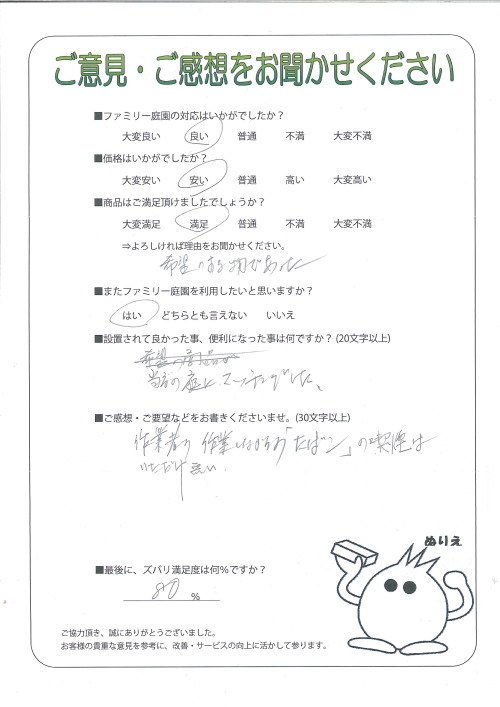 ご意見・ご感想をお聞かせください
■ファミリー庭園の対応はいかがでしたか？
大変良い 良い 普通 不満 大変不満
■価格はいかがでしたか？
大変安い 安い 普通 高い 大変高い
■商品はご満足頂けましたでしょうか？
大変満足 満足 普通 不満 大変不満
⇒よろしければ理由をお聞かせください。
希望のする物があった
■またファミリー庭園を利用したいと思いますか？
はい どちらとも言えない いいえ
■設置されて良かった事、便利になった事は何ですか？(20文字以上)
当方の庭にマッチングした、
■ご感想・ご要望などをお書きくださいませ。(30文字以上)
作業者の作業しながらの「たばこ」の喫煙は
いただけ無い
ぬりえ
■最後に、ズバリ満足度は何％ですか？
80 %
ご協力頂き、誠にありがとうございました。
お客様の貴重な意見を参考に、改善・サービスの向上に活かして参ります。